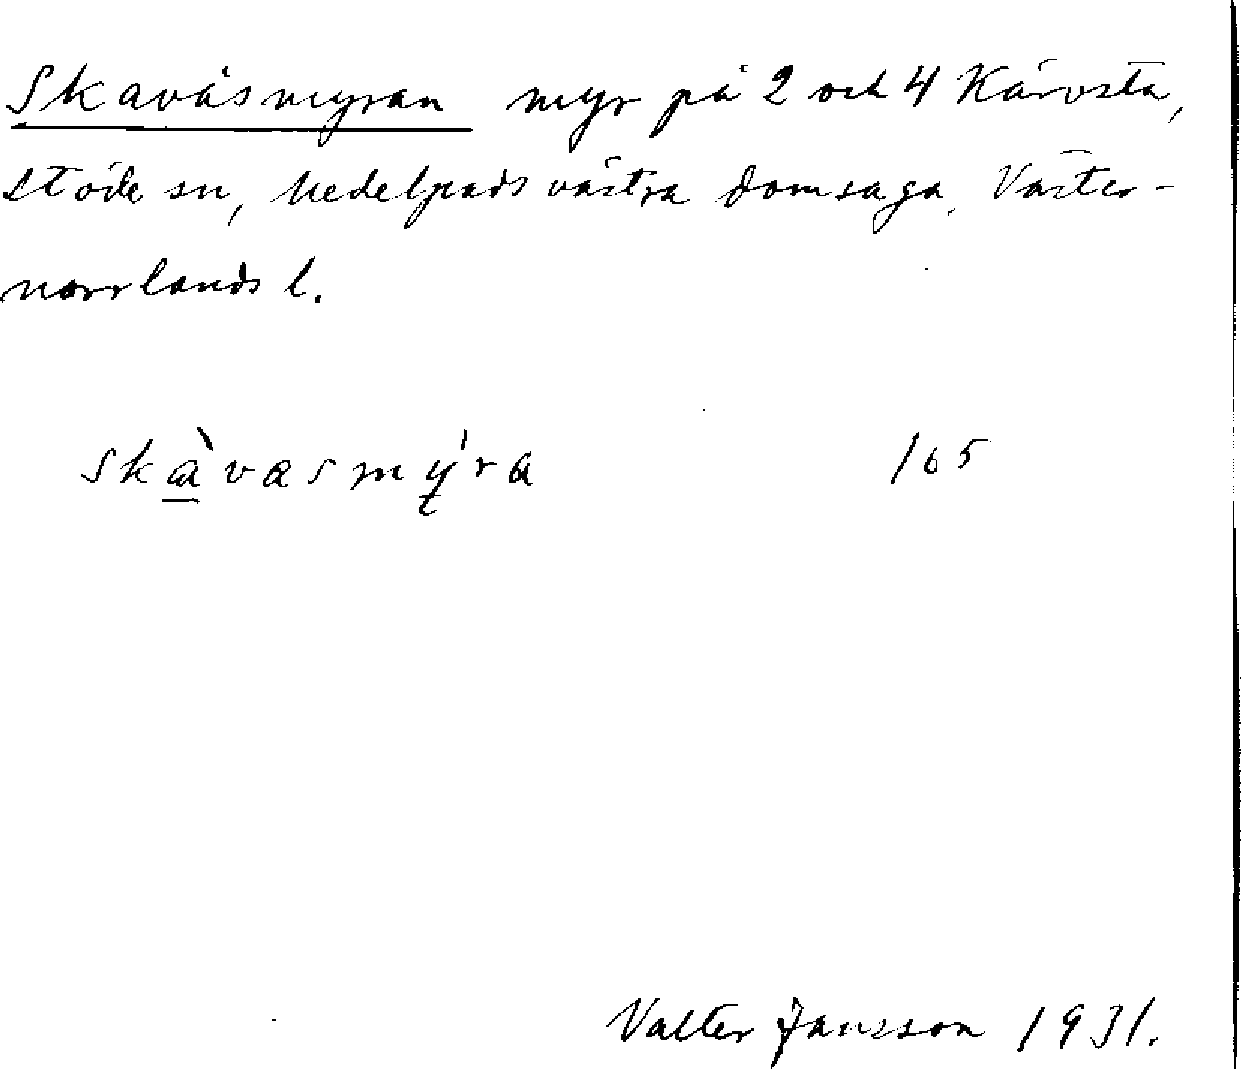 Skavåsmyran myr på 2 och 4 Kärvsta,
Stöde sn, Medelpads västra domsaga, Väster-
norrlands l.
skàvasmý̨ra 165
Valter Jansson 1931.